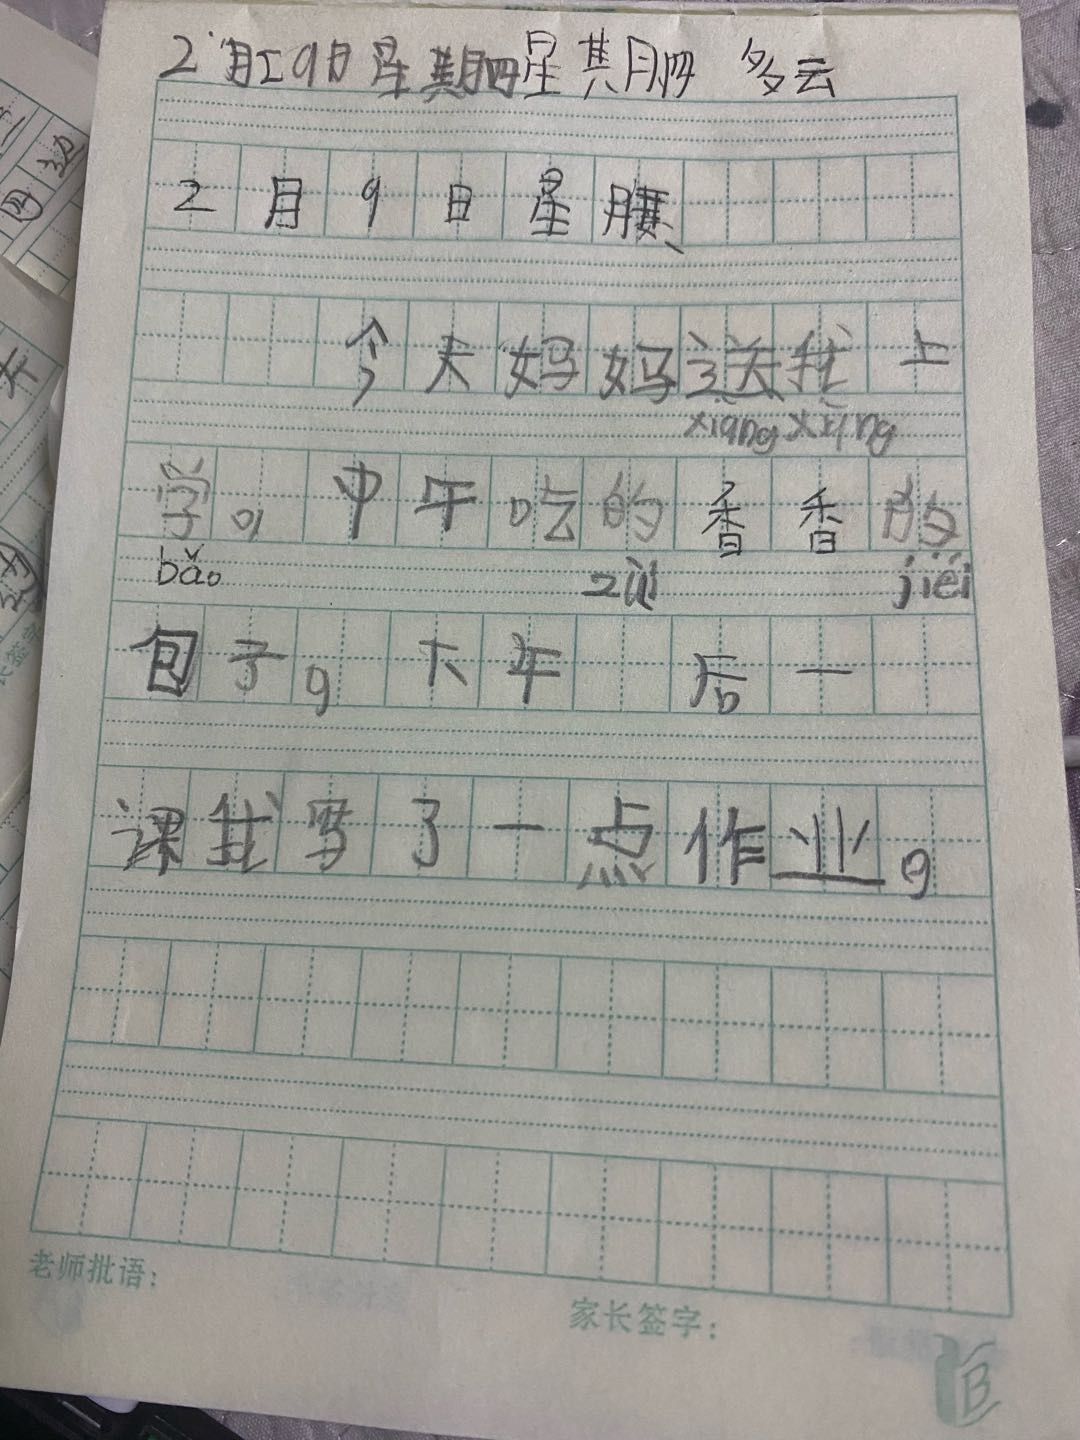 2月19日星期四星期四 多云
2月9日星期
今天妈妈送我上
xiāng xiāng
学。中午吃的香香的
bǎo zuì jié
包子。下午 后一
课我写了一点作业。
老师批语：
家长签字：
B